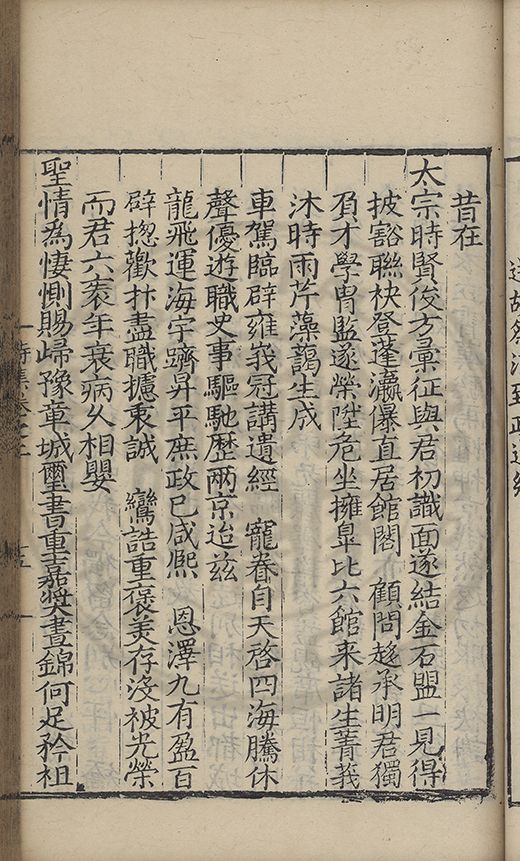 昔在
太宗時賢俊方彙征與君初識面遂結金石盟一見得
披豁聯袂登蓬瀛儤直居館閣 顧問趍承明君獨
負才學胄監遂榮陞危坐擁臯比六館来諸生菁莪
沐時雨芹藻藹生成
車駕臨辟雍峩冠講遺經 寵眷自天啓四海騰休
聲優遊職史事驅馳歷兩京迨兹
龍飛運海宇躋昇平庶政已咸熈 恩澤九有盈百
辟揔歡抃盡職攄衷誠 鸞誥重褒美存没被光榮
而君六袠年衰病久相嬰
聖情為悽惻賜歸豫章城璽書重嘉奬晝錦何足矜祖
詩集卷之二
十三